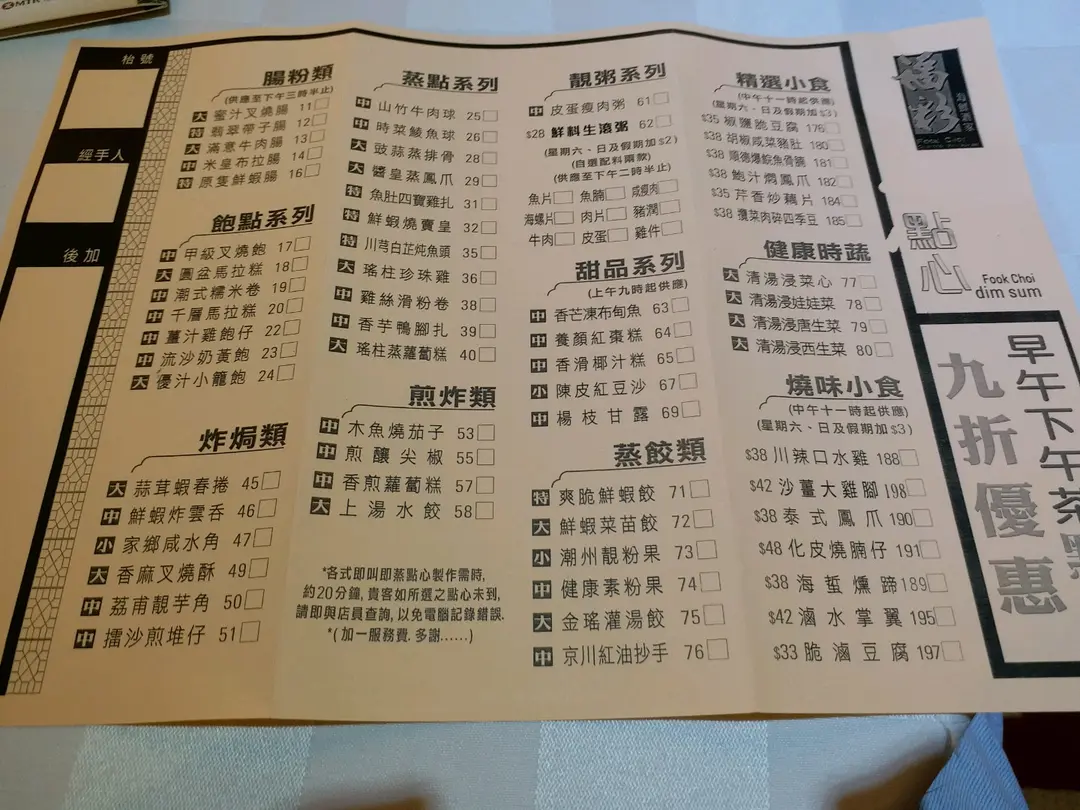 MTR
枱號
經手人
後加
腸粉類
(供應至下午三時半止)
大 蜜汁叉燒腸 11
特 翡翠帶子腸 12
大 滿意牛肉腸 13
中 米皇布拉腸 14
特 原隻鮮蝦腸 16
飽點系列
中 甲級叉燒飽 17
大 圓盆馬拉糕 18
中 潮式糯米卷 19
中 千層馬拉糕 20
中 薑汁雞飽仔 22
中 流沙奶黃飽 23
大 優汁小籠飽 24
炸焗類
大 蒜茸蝦春捲 45
中 鮮蝦炸雲吞 46
小 家鄉咸水角 47
大 香麻叉燒酥 49
中 荔甫靚芋角 50
中 擂沙煎堆仔 51
蒸點系列
中 山竹牛肉球 25
中 時菜鯪魚球 26
大 豉蒜蒸排骨 28
大 醬皇蒸鳳爪 29
特 魚肚四寶雞扎 31
特 鮮蝦燒賣皇 32
特 川芎白芷炖魚頭 35
大 瑤柱珍珠雞 36
中 雞絲滑粉卷 38
中 香芋鴨腳扎 39
大 瑤柱蒸蘿蔔糕 40
煎炸類
中 木魚燒茄子 53
中 煎釀尖椒 55
中 香煎蘿蔔糕 57
大 上湯水餃 58
*各式即叫即蒸點心製作需時,
約20分鐘, 貴客如所選之點心未到,
請即與店員查詢, 以免電腦記錄錯誤.
*(加一服務費, 多謝......)
靚粥系列
中 皮蛋瘦肉粥 61
$28 鮮料生滾粥 62
(星期六、日及假期加$2)
(自選配料兩款)
(供應至下午二時半止)
魚片 魚腩 咸瘦肉
海螺片 肉片 豬潤
牛肉 皮蛋 雞件
甜品系列
(上午九時起供應)
中 香芒凍布甸魚 63
中 養顏紅棗糕 64
中 香滑椰汁糕 65
小 陳皮紅豆沙 67
中 楊枝甘露 69
蒸餃類
特 爽脆鮮蝦餃 71
大 鮮蝦菜苗餃 72
小 潮州靚粉果 73
中 健康素粉果 74
大 金瑤灌湯餃 75
中 京川紅油抄手 76
精選小食
(中午十一時起供應)
(星期六、日及假期加$3)
$35 椒鹽脆豆腐 176
$38 胡椒咸菜豬肚 180
$38 順德爆鯇魚骨腩 181
$38 鮑汁燜鳳爪 182
$35 芹香炒藕片 184
$38 欖菜肉碎四季豆 185
健康時蔬
大 清湯浸菜心 77
大 清湯浸娃娃菜 78
大 清湯浸唐生菜 79
大 清湯浸西生菜 80
燒味小食
(中午十一時起供應)
(星期六、日及假期加$3)
$38 川辣口水雞 188
$42 沙薑大雞腳 198
$38 泰式鳳爪 190
$48 化皮燒腩仔 191
$38 海蜇燻蹄 189
$42 滷水掌翼 195
$33 脆滷豆腐 197
福彩
海鮮酒家
Fook Choi
點心
Fook Choi
dim sum
早午下午茶點
九折優惠